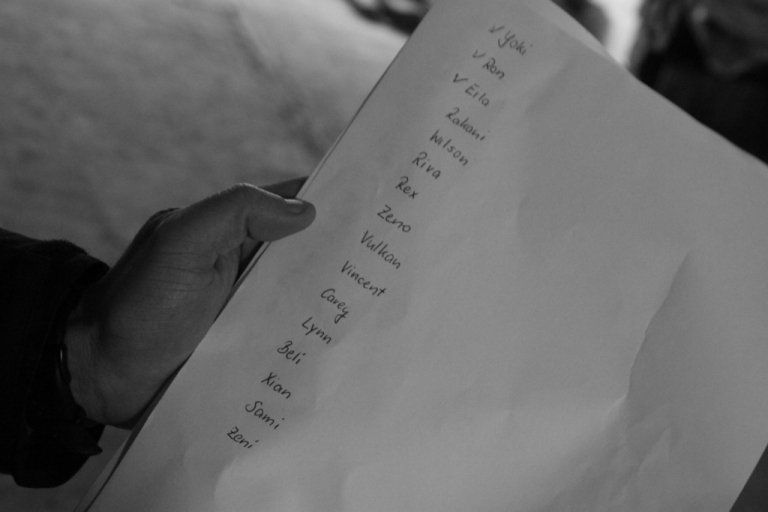 ✓ Yoki
✓ Ron
✓ Eila
Rakani
Wilson
Riva
Rex
Zeno
Vulkan
Vincent
Carey
Lynn
Beli
Xian
Sami
Zeni